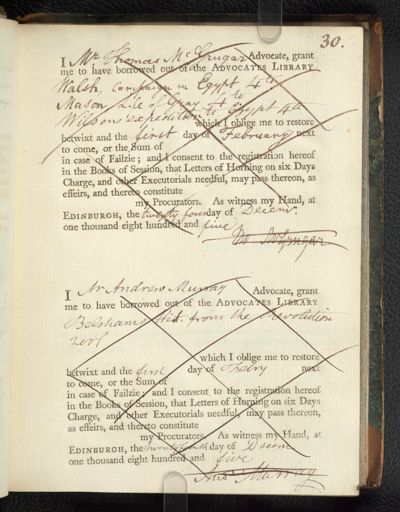 30.
I Mr Thomas McGrugar Advocate, grant
me to have borrowed out of the ADVOCATES LIBRARY
Walsh, Campaign in Egypt 4to
Mason, Life of Gray 4to
Wilsons expedition to Egypt 4to
which I oblige me to restore
betwixt and the first day of February next
to come, or the Sum of
in case of Failzie; and I consent to the registration hereof
in the Books of Session, that Letters of Horning on six Days
Charge, and other Executorials needful, may pass thereon, as
effeirs, and thereto constitute
my Procurators. As witness my Hand, at
EDINBURGH, the twenty four day of Decem.
one thousand eight hundred and five
McGrugar
I Mr Andrew Murray Advocate, grant
me to have borrowed out of the ADVOCATES LIBRARY
Belsham's Hist. from the Revolution
2 vol
which I oblige me to restore
betwixt and the first day of Febry next
to come, or the Sum of
in case of Failzie; and I consent to the registration hereof
in the Books of Session, that Letters of Horning on six Days
Charge, and other Executorials needful, may pass thereon,
as effeirs, and thereto constitute
my Procurators. As witness my Hand, at
EDINBURGH, the day of Decem
one thousand eight hundred and five
And. Murray